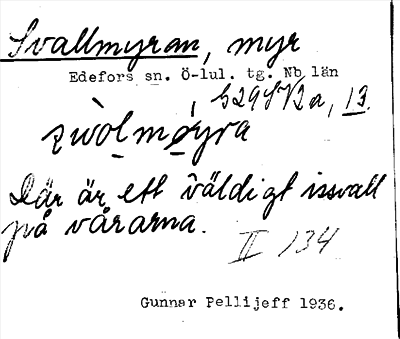 Svallmyran, myr
Edefors sn. Ö-lul. tg. Nb län
, 13.
Där är ett väldigt issvall
på vårarna.
II 134
Gunnar Pellijeff 1936.